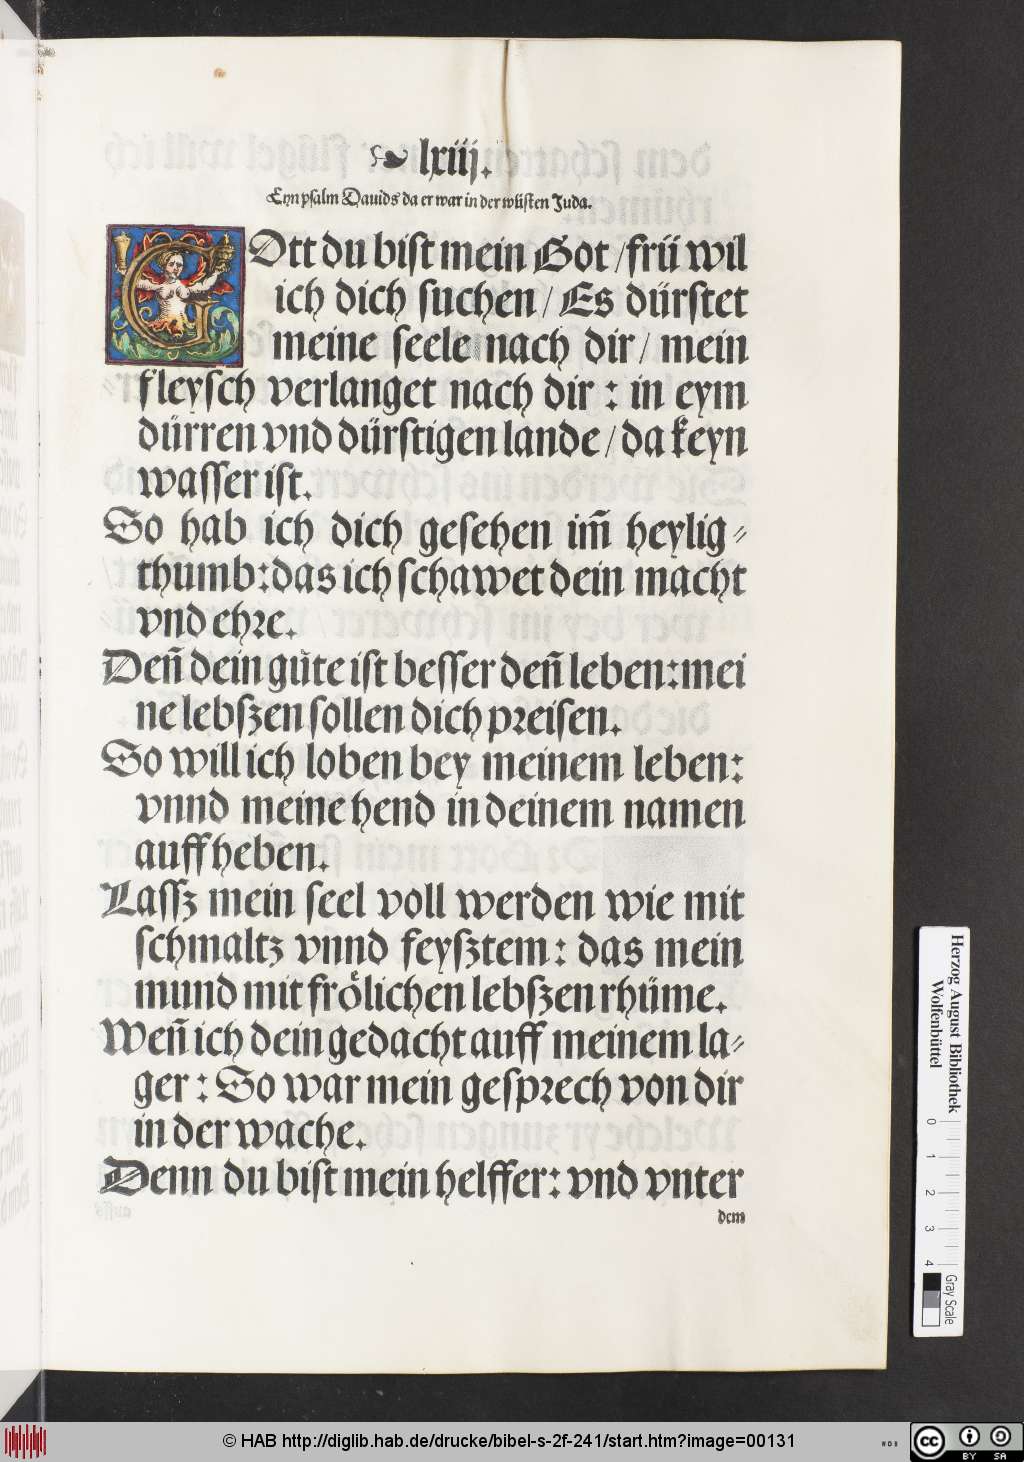 lxiij.
Eyn psalm Dauids da er war in der wüsten Juda.
GOtt du bist mein Got / frü wil
ich dich suchen / Es dürstet
meine seele nach dir / mein
fleysch verlanget nach dir : in eym
dürren vnd dürstigen lande / da keyn
wasser ist.
So hab ich dich gesehen im̃ heylig⸗
thumb : das ich schawet dein macht
vnd ehre.
Deñ dein gůte ist besser deñ leben : mei
ne lebszen sollen dich preisen.
So will ich loben bey meinem leben :
vnnd meine hend in deinem namen
auffheben.
Lassz mein seel voll werden wie mit
schmaltz vnnd feysztem : das mein
mund mit frôͤlichen lebszen rhüme.
Weñ ich dein gedacht auff meinem la⸗
ger : So war mein gesprech von dir
in der wache.
Denn du bist mein helffer : vnd vnter
dem
Herzog August Bibliothek
Wolfenbüttel
0 1 2 3 4
Gray Scale
© HAB http://diglib.hab.de/drucke/bibel-s-2f-241/start.htm?image=00131
WDB
cc BY SA